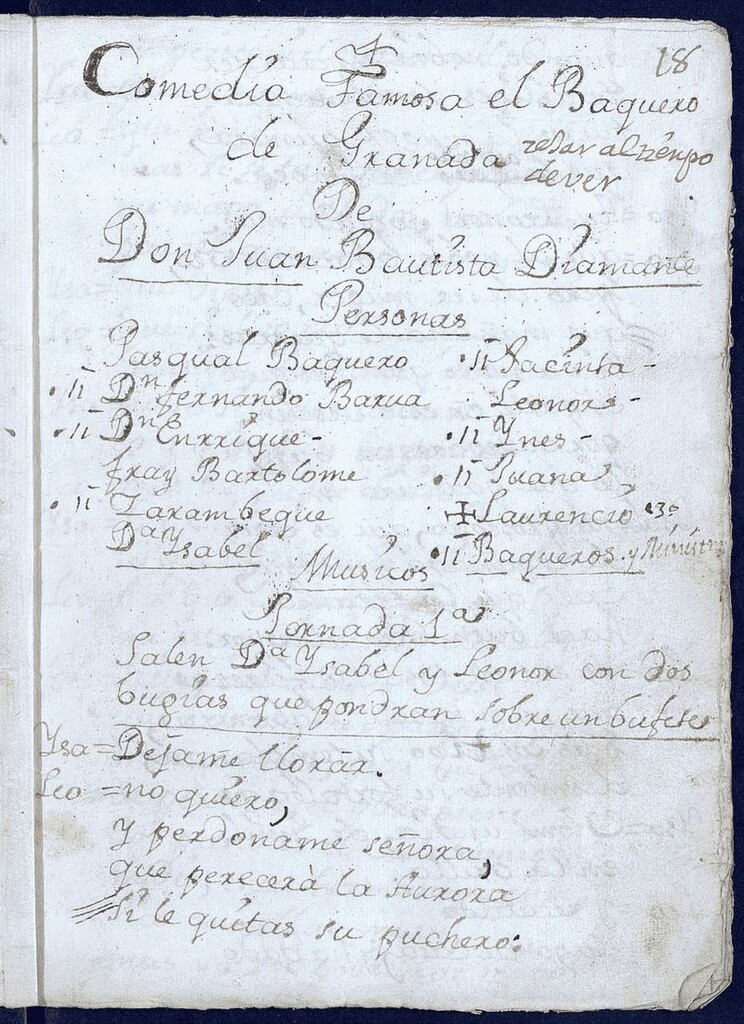 18
Comedia Famosa el Baquero
de Granada
de ver
De
Don Juan Bautista Diamante
Personas
Pasqual Baquero
Dn fernando Barua
Dn Enrrique-
fray Bartolome
Zarambeque
Da Ysabel
Jacinta-
Leonor-
Ynes-
Juana
Laurencio
Baqueros y Ministros
Musicos
Jornada 1a
Salen Da Ysabel y Leonor con dos
bugias que pondran sobre un bufete
Ysa=Dejame llorar.
Leo =no quiero,
Y perdoname señora,
que perecerà la Aurora
si le quitas su puchero: